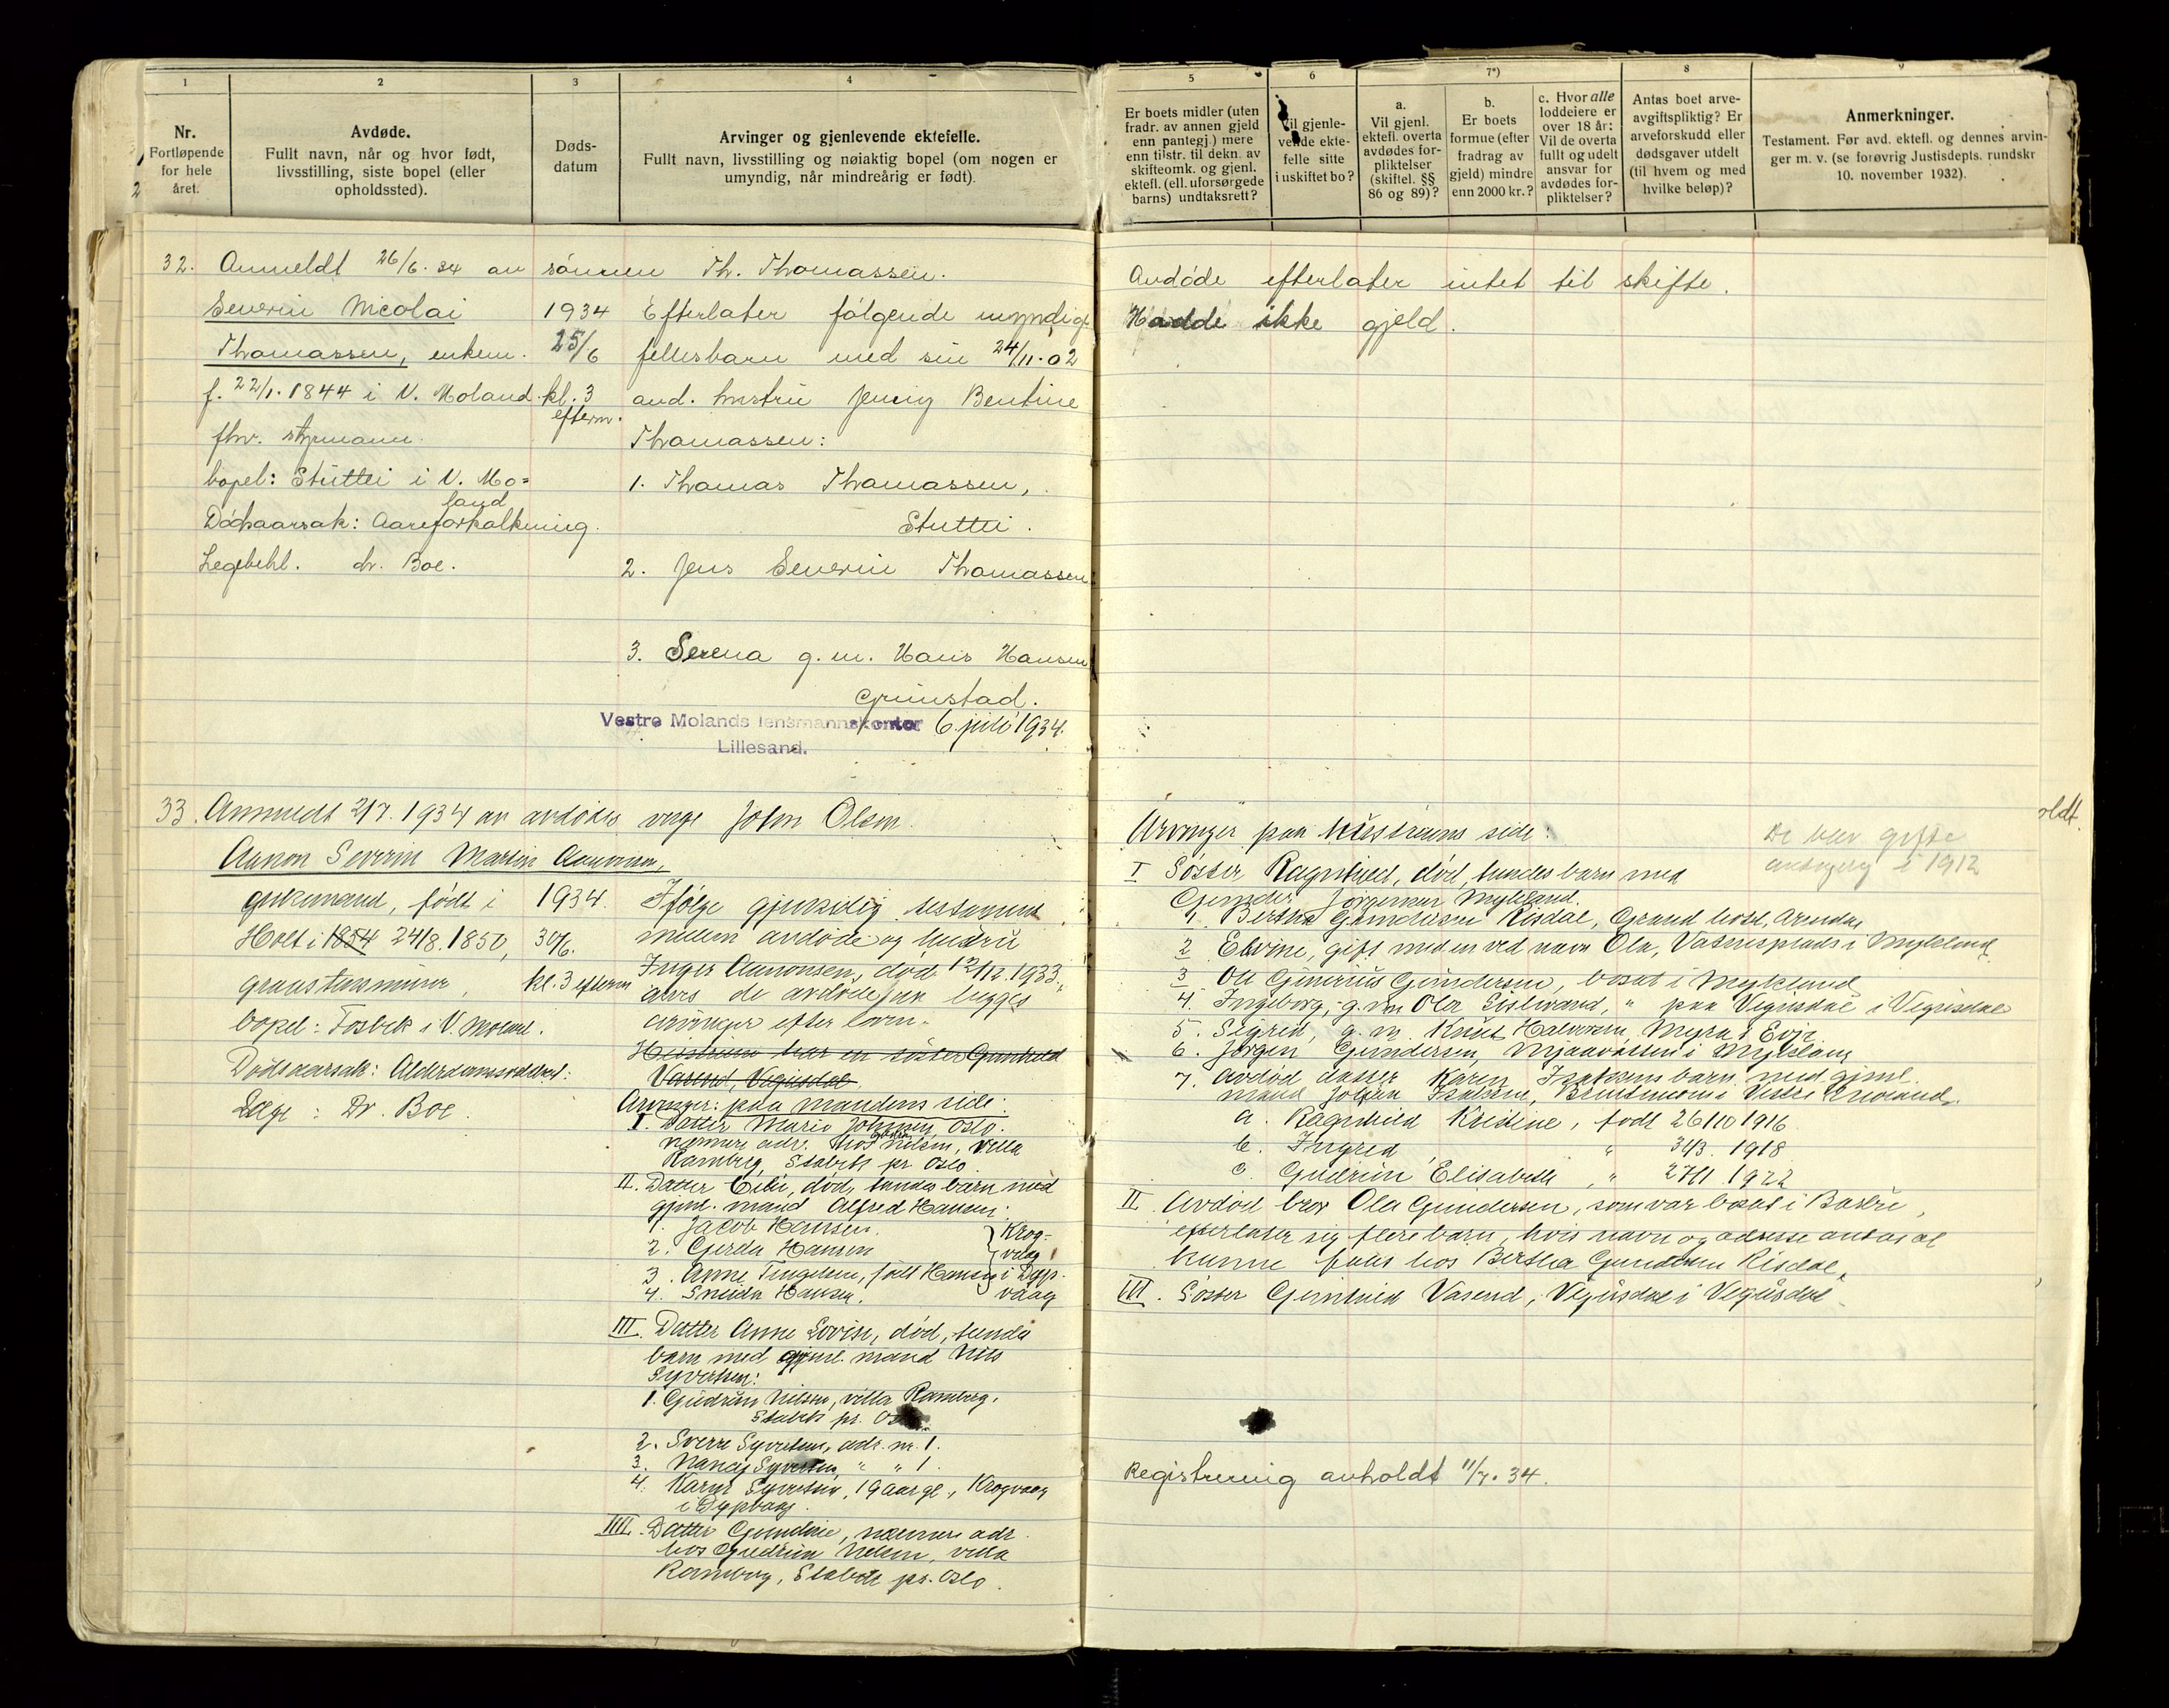 1
2
3
4
5
6
7*)
8
9
Nr.
Fortløpende
for hele
året.
Avdøde.
Fullt navn, når og hvor født,
livsstilling, siste bopel (eller
opholdssted).
Døds-
datum
Arvinger og gjenlevende ektefelle.
Fullt navn, livsstilling og nøiaktig bopel (om nogen er
umyndig, når mindreårig er født).
Er boets midler (uten
fradr. av annen gjeld
enn pantegj.) mere
enn tilstr. til dekn. av
skifteomk. og gjenl.
ektefl. (ell. uforsørgede
barns) undtaksrett?
Vil gjenle-
vende ekte-
felle sitte
i uskiftet bo?
a.
Vil gjenl.
ektefl. overta
avdødes for-
pliktelser
(skiftel. §§
86 og 89)?
b.
Er boets
formue (efter
fradrag av
gjeld) mindre
enn 2000 kr.?
c. Hvor alle
loddeiere er
over 18 år:
Vil de overta
fullt og udelt
ansvar for
avdødes for-
pliktelser?
Antas boet arve-
avgiftspliktig? Er
arveforskudd eller
dødsgaver utdelt
(til hvem og med
hvilke beløp)?
Anmerkninger.
Testament. Før avd. ektefl. og dennes arvin-
ger m. v. (se forøvrig Justisdepts. rundskr
10. november 1932).
32. Anmeldt 26/6.34 av sønnen Th. Thomassen.
Severin Nicolai
Thomassen, enkem.
f. 22/1.1844 i V. Moland
fhv. styrmann.
bopel: Stuttei i V. Mo=
land
Dødsaarsak: Aareforkalkning.
Legebehl. dr. Boe.
1934
25/6
kl. 3
efterm.
Efterlater følgende myndige
fellesbarn med sin 24/11.02
avd. hustru Jenny Bentine
Thomassen:
1. Thomas Thomassen,
Stuttei.
2. Jens Severin Thomassen
3. Serena g.m. Hans Hansen
Grimstad.
Vestre Molands lensmannskontor 6. juli 1934.
Lillesand.
Avdøde efterlater intet til skifte.
Hadde ikke gjeld.
33. Anmeldt 2/7.1934 av avdødes verge John Olsen.
Aanon Severin Martin Aanonsen,
enkemand, født i
Holt i 1854 24/8.1850,
graastensmurer,
bopel: Fosbek i V. Moland.
Dødsaarsak: Alderdomssvakhed.
Læge: Dr. Boe.
1934.
30/6.
kl. 3 efterm
Ifølge gjensidig testament
mellem avdøde og hustru
Inger Aanonsen, død 12/12.1933,
arves de avdøde av begges
arvinger efter loven.
Hustruen har en søster Gunhild
Varend, Vegusdal
Arvinger: paa mandens side:
I. Datter Marie Johnsen, Oslo.
nærmere adr. hos Gudrun Nilsen, Villa
Ramberg, Stabekk pr. Oslo.
II. Datter død, hendes barn med
gjenl. mand Alfred Hansen:
1. Jacob Hansen.
2. Gerda Hansen
3. Anne Tingelsen, født Hansen
4. Hansen.
Krog-
vaag
i Dyp-
vaag
III. Datter Anne Lovise, død, hendes
barn med gjenl. mand Nils
Syvertsen:
1. Gudrun Nilsen, villa Ramberg.
Stabekk pr. Oslo.
2. Sverre Syvertsen, adr. nr. 1.
3. Nancy Syvertsen, " " 1.
4. Karin Syvertsen, 19 aar gl., Krogvaag
i Dypvaag.
IIII. Datter Gundine, nærmere adr.
hos Gudrun Nilsen, villa
Ramberg, Stabekk pr. Oslo.
Arvinger paa hustruens side:
I Søster Ragnhild, død, hendes barn med
Gunder Jørgensen Mykland.
1. Bertha Gundersen Risdal, Grand hotel, Arendal
2 Elvine, gift med en ved navn Ola, Vatnesplads i Mykland
3 Ole Gunerius Gundersen, bosat i Mykland
4. Ingeborg, g.m. Ola " paa Vegusdal i Vegusdal
5. Sigrid, g.m. Knut Halvorsen, Myra i Evje
6. Jørgen Gundersen, Mjaavatten i Mykland
7. avdød datter Karen Isaksens barn med gjenl.
mand Isaksen, i Vestre Moland.
a. Ragnhild Kristine, født 26/10 1916.
b. Ingrid " 3/3. 1918
c. Gudrun Elisabeth, " 27/1.1922
II. Avdød bror Ola Gundersen, som var bosat i
efterlater sig flere barn, hvis navn og adresse antas at
kunne faaes hos Bertha Gundersen Risdal.
III. Søster Gunhild Varend, Vegusdal i Vegusdal
De blev gifte
i 1912
oldt.
Registrering avholdt 11/7.34.